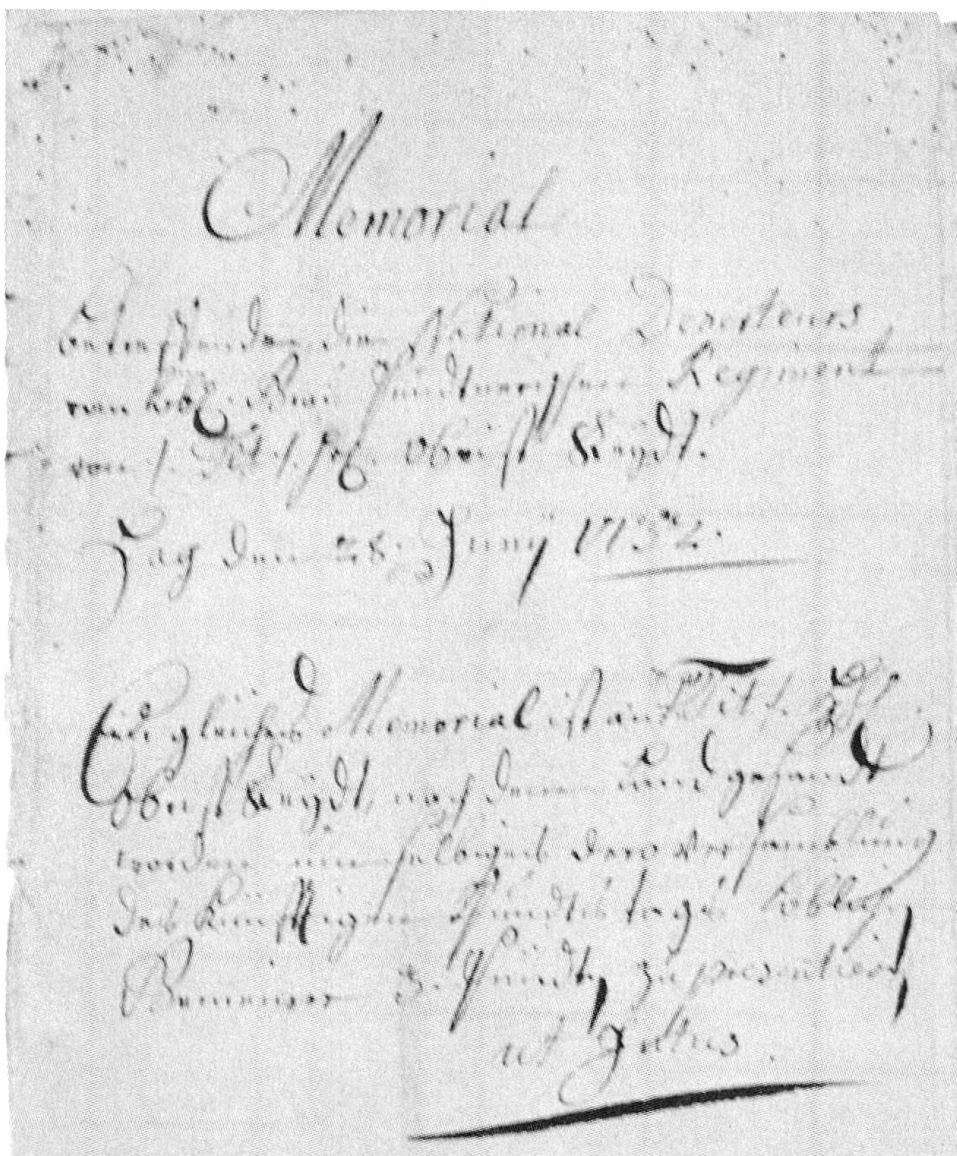 Memorial
betreffendt die National Deserteurs
von Löbl. Pündtnerischen Regiment
von Obrist Keydt.
Hag den 28. Juny 1732.
Ein gleiches Memorial ist an Tit.
Obrist Keydt, nach dem Land gesandt
worden umb selbiges dero Versamblung
des künfftigen Pundtstags Löblich
Gemeiner 3. Pündt, zu presentiert
ut